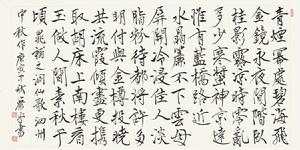 青煙冪處碧海飛
金鏡永夜閑階臥
桂影露涼時零亂
多少寒螿神京遠
惟有藍橋路近
水晶簾不下雲母
屏開冷浸佳人淡
脂粉待都將許多
明付與金尊投曉
共流霞傾盡更攜
取胡床上南樓看
玉做人間素秋千
頃 晁補之詞洞仙歌泗州
中秋作 庚寅 書